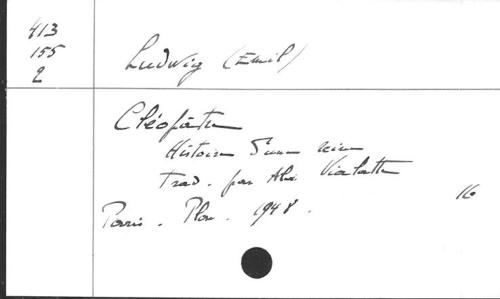 413
155
2
Ludwig (Emil)
Cléopâtre
Histoire d'une reine
Trad. par Alex Vialatte
Paris. Plon. 1948.
16